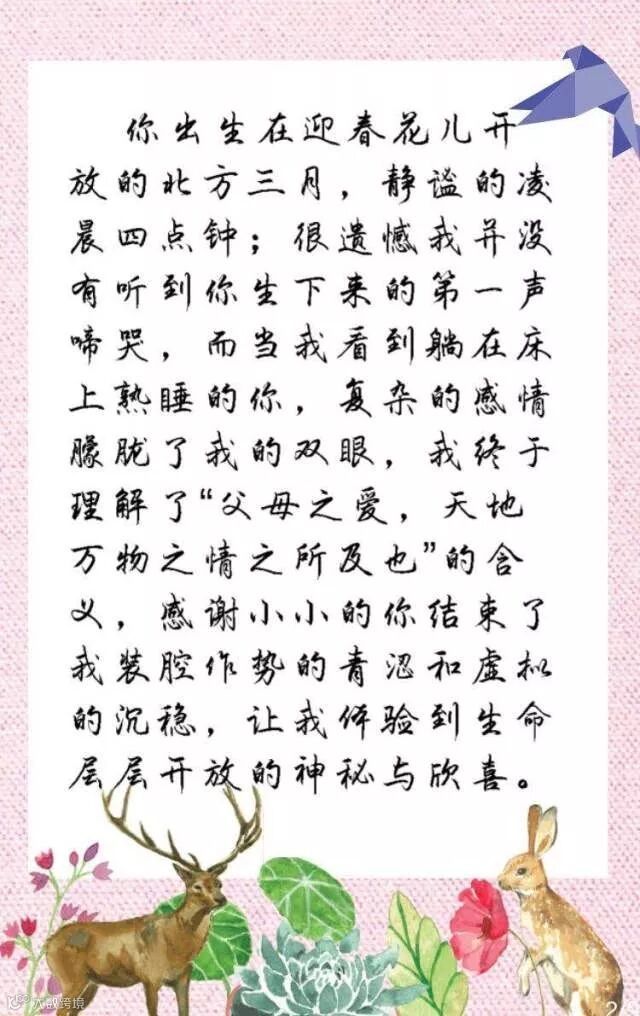 你出生在迎春花儿开
放的北方三月，静谧的凌
晨四点钟；很遗憾我并没
有听到你生下来的第一声
啼哭，而当我看到躺在床
上熟睡的你，复杂的感情
朦胧了我的双眼，我终于
理解了“父母之爱，天地
万物之情之所及也”的含
义，感谢小小的你结束了
我装腔作势的青涩和虚拟
的沉稳，让我体验到生命
层层开放的神秘与欣喜。
大数跨境
2